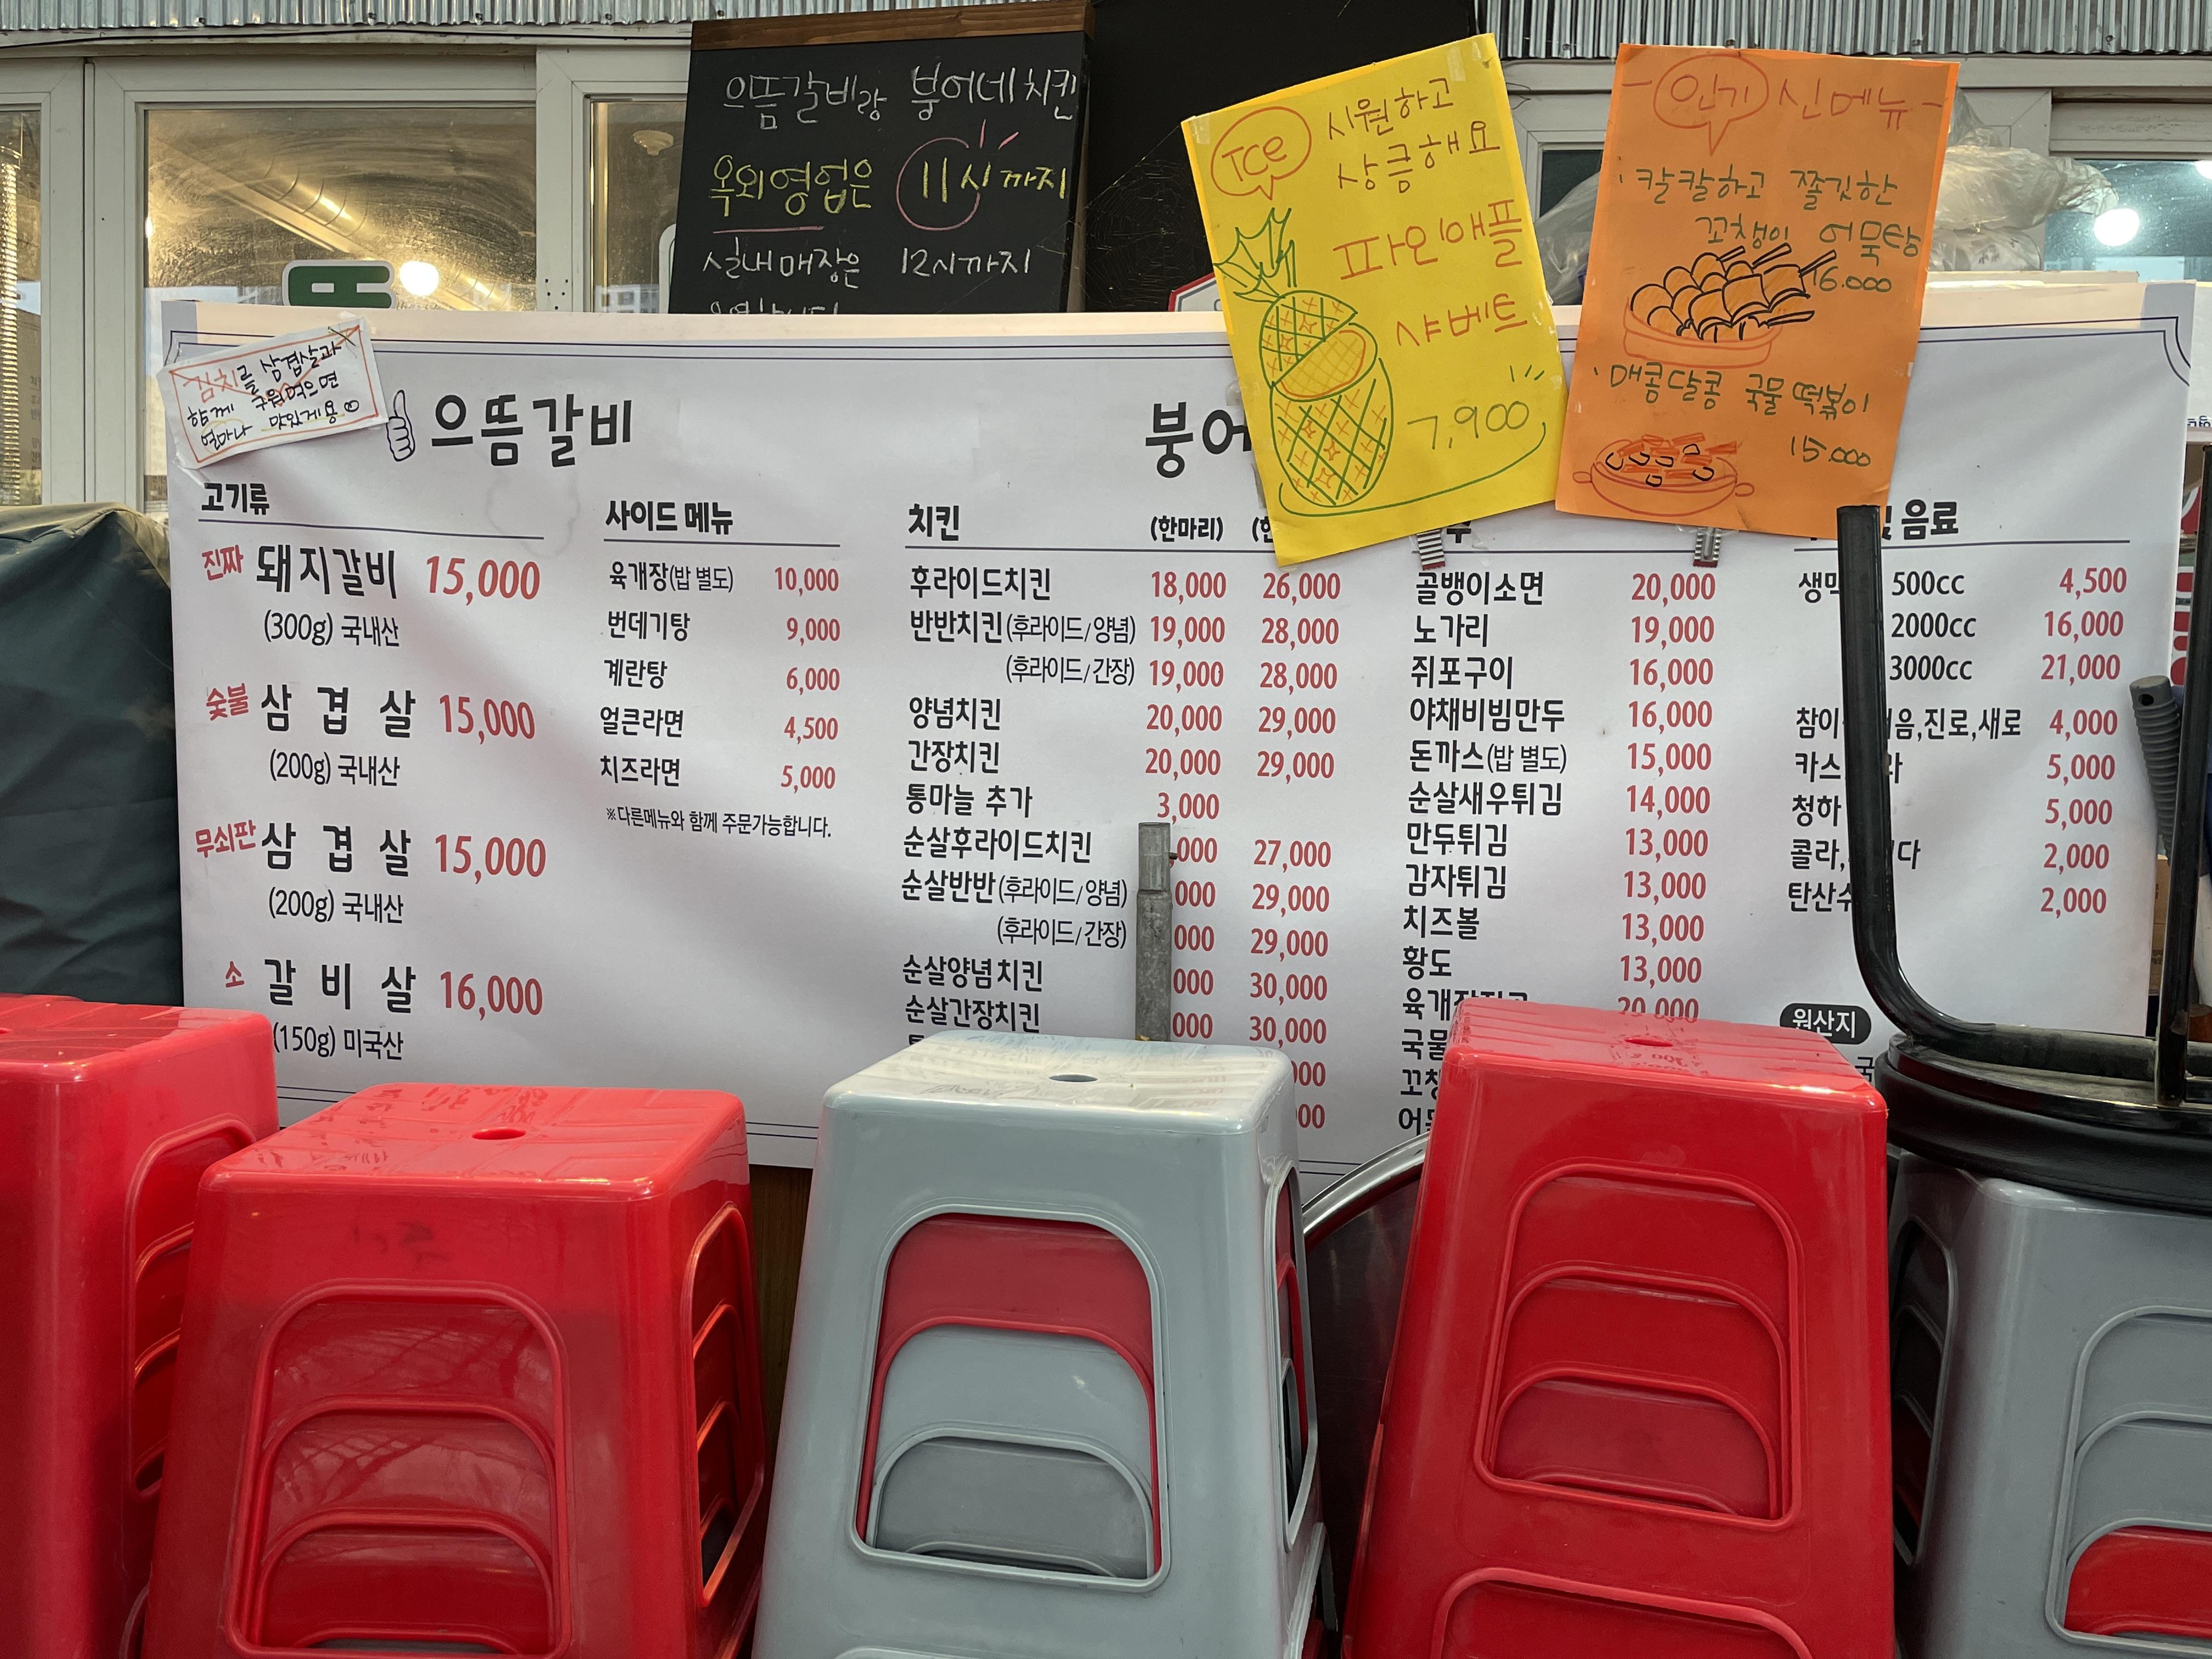 으뜸갈비랑 붕어네치킨
옥외영업은 11시까지
실내매장은 12시까지
Ice 시원하고
상큼해요
파인애플
샤베트
7,900
-인기 신메뉴-
·칼칼하고 쫄깃한
꼬챙이 어묵탕
16.000
·매콤달콤 국물떡볶이
15.000
김치를 삼겹살과
함께 구워먹으면
얼마나 맛있게용
으뜸갈비
붕어
고기류
진짜 돼지갈비 15,000
(300g) 국내산
숯불 삼겹살 15,000
(200g) 국내산
무쇠판 삼겹살 15,000
(200g) 국내산
소 갈비살 16,000
(150g) 미국산
사이드 메뉴
육개장(밥 별도) 10,000
번데기탕 9,000
계란탕 6,000
얼큰라면 4,500
치즈라면 5,000
※다른메뉴와 함께 주문가능합니다.
치킨 (한마리)
후라이드치킨 18,000 26,000
반반치킨(후라이드/양념) 19,000 28,000
(후라이드/간장) 19,000 28,000
양념치킨 20,000 29,000
간장치킨 20,000 29,000
통마늘 추가 3,000
순살후라이드치킨 27,000
순살반반(후라이드/양념) 29,000
(후라이드/간장) 29,000
순살양념치킨 30,000
순살간장치킨 30,000
골뱅이소면 20,000
노가리 19,000
쥐포구이 16,000
야채비빔만두 16,000
돈까스(밥 별도) 15,000
순살새우튀김 14,000
만두튀김 13,000
감자튀김 13,000
치즈볼 13,000
황도 13,000
육개장 20,000
국물
음료
500cc 4,500
2000cc 16,000
3000cc 21,000
진로,새로 4,000
카스 5,000
청하 5,000
콜라, 2,000
탄산수 2,000
원산지